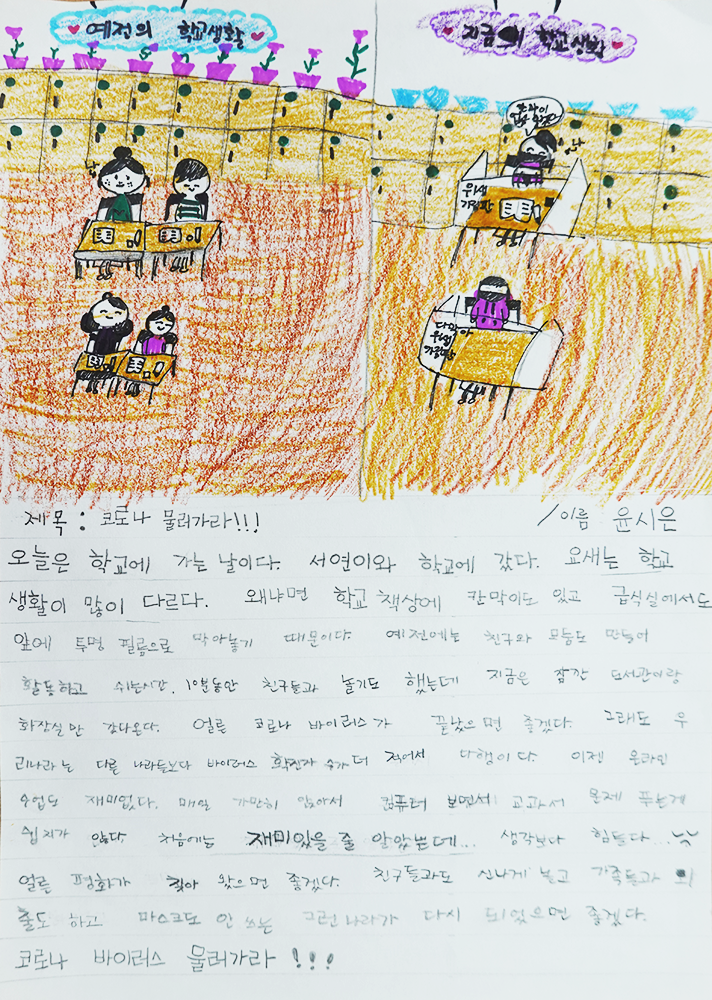 예전의 학교생활
지금의 학교생활
위생
가림판
다막아
위생
가림판
제목 : 코로나 물러가라!!! /이름 윤시은
오늘은 학교에 가는 날이다. 서연이와 학교에 갔다. 요새는 학교
생활이 많이 다르다. 왜냐면 학교 책상에 칸막이도 있고 급식실에서도
앞에 투명 필름으로 막아놓기 때문이다. 예전에는 친구와 모둠도 만들어
활동하고 쉬는시간, 10분동안 친구들과 놀기도 했는데 지금은 잠깐 도서관이랑
화장실만 갔다온다. 얼른 코로나 바이러스가 끝났으면 좋겠다. 그래도 우
리나라는 다른 나라들보다 바이러스 확진자 수가 더 적어서 다행이다. 이젠 온라인
수업도 재미없다. 매일 가만히 앉아서 컴퓨터 보면서 교과서 문제 푸는게
쉽지가 않다. 처음에는 재미있을 줄 알았는데... 생각보다 힘들다...
얼른 평화가 찾아 왔으면 좋겠다. 친구들과도 신나게 놀고 가족들과 외
출도 하고 마스크도 안 쓰는 그런 나라가 다시 되었으면 좋겠다.
코로나 바이러스 물러가라 !!!